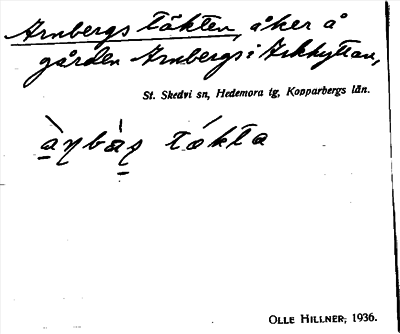 Arnbergs täkten, åker å
gården Arnbergs i Arkhyttan,
St. Skedvi sn, Hedemora tg, Kopparbergs län.
tækta
OLLE HILLNER, 1936.